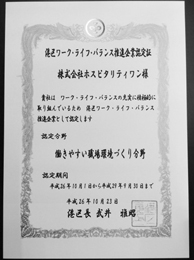 港区ワーク・ライフ・バランス推進企業認定証
株式会社ホスピタリティワン様
貴社は ワーク・ライフ・バランスの充実に積極的に
取り組んでいるため 港区ワーク・ライフ・バランス
推進企業として認定します
認定分野
働きやすい職場環境づくり分野
認定期間
平成26年10月1日から平成29年9月30日まで
平成26年10月23日
港区長 武井 雅昭